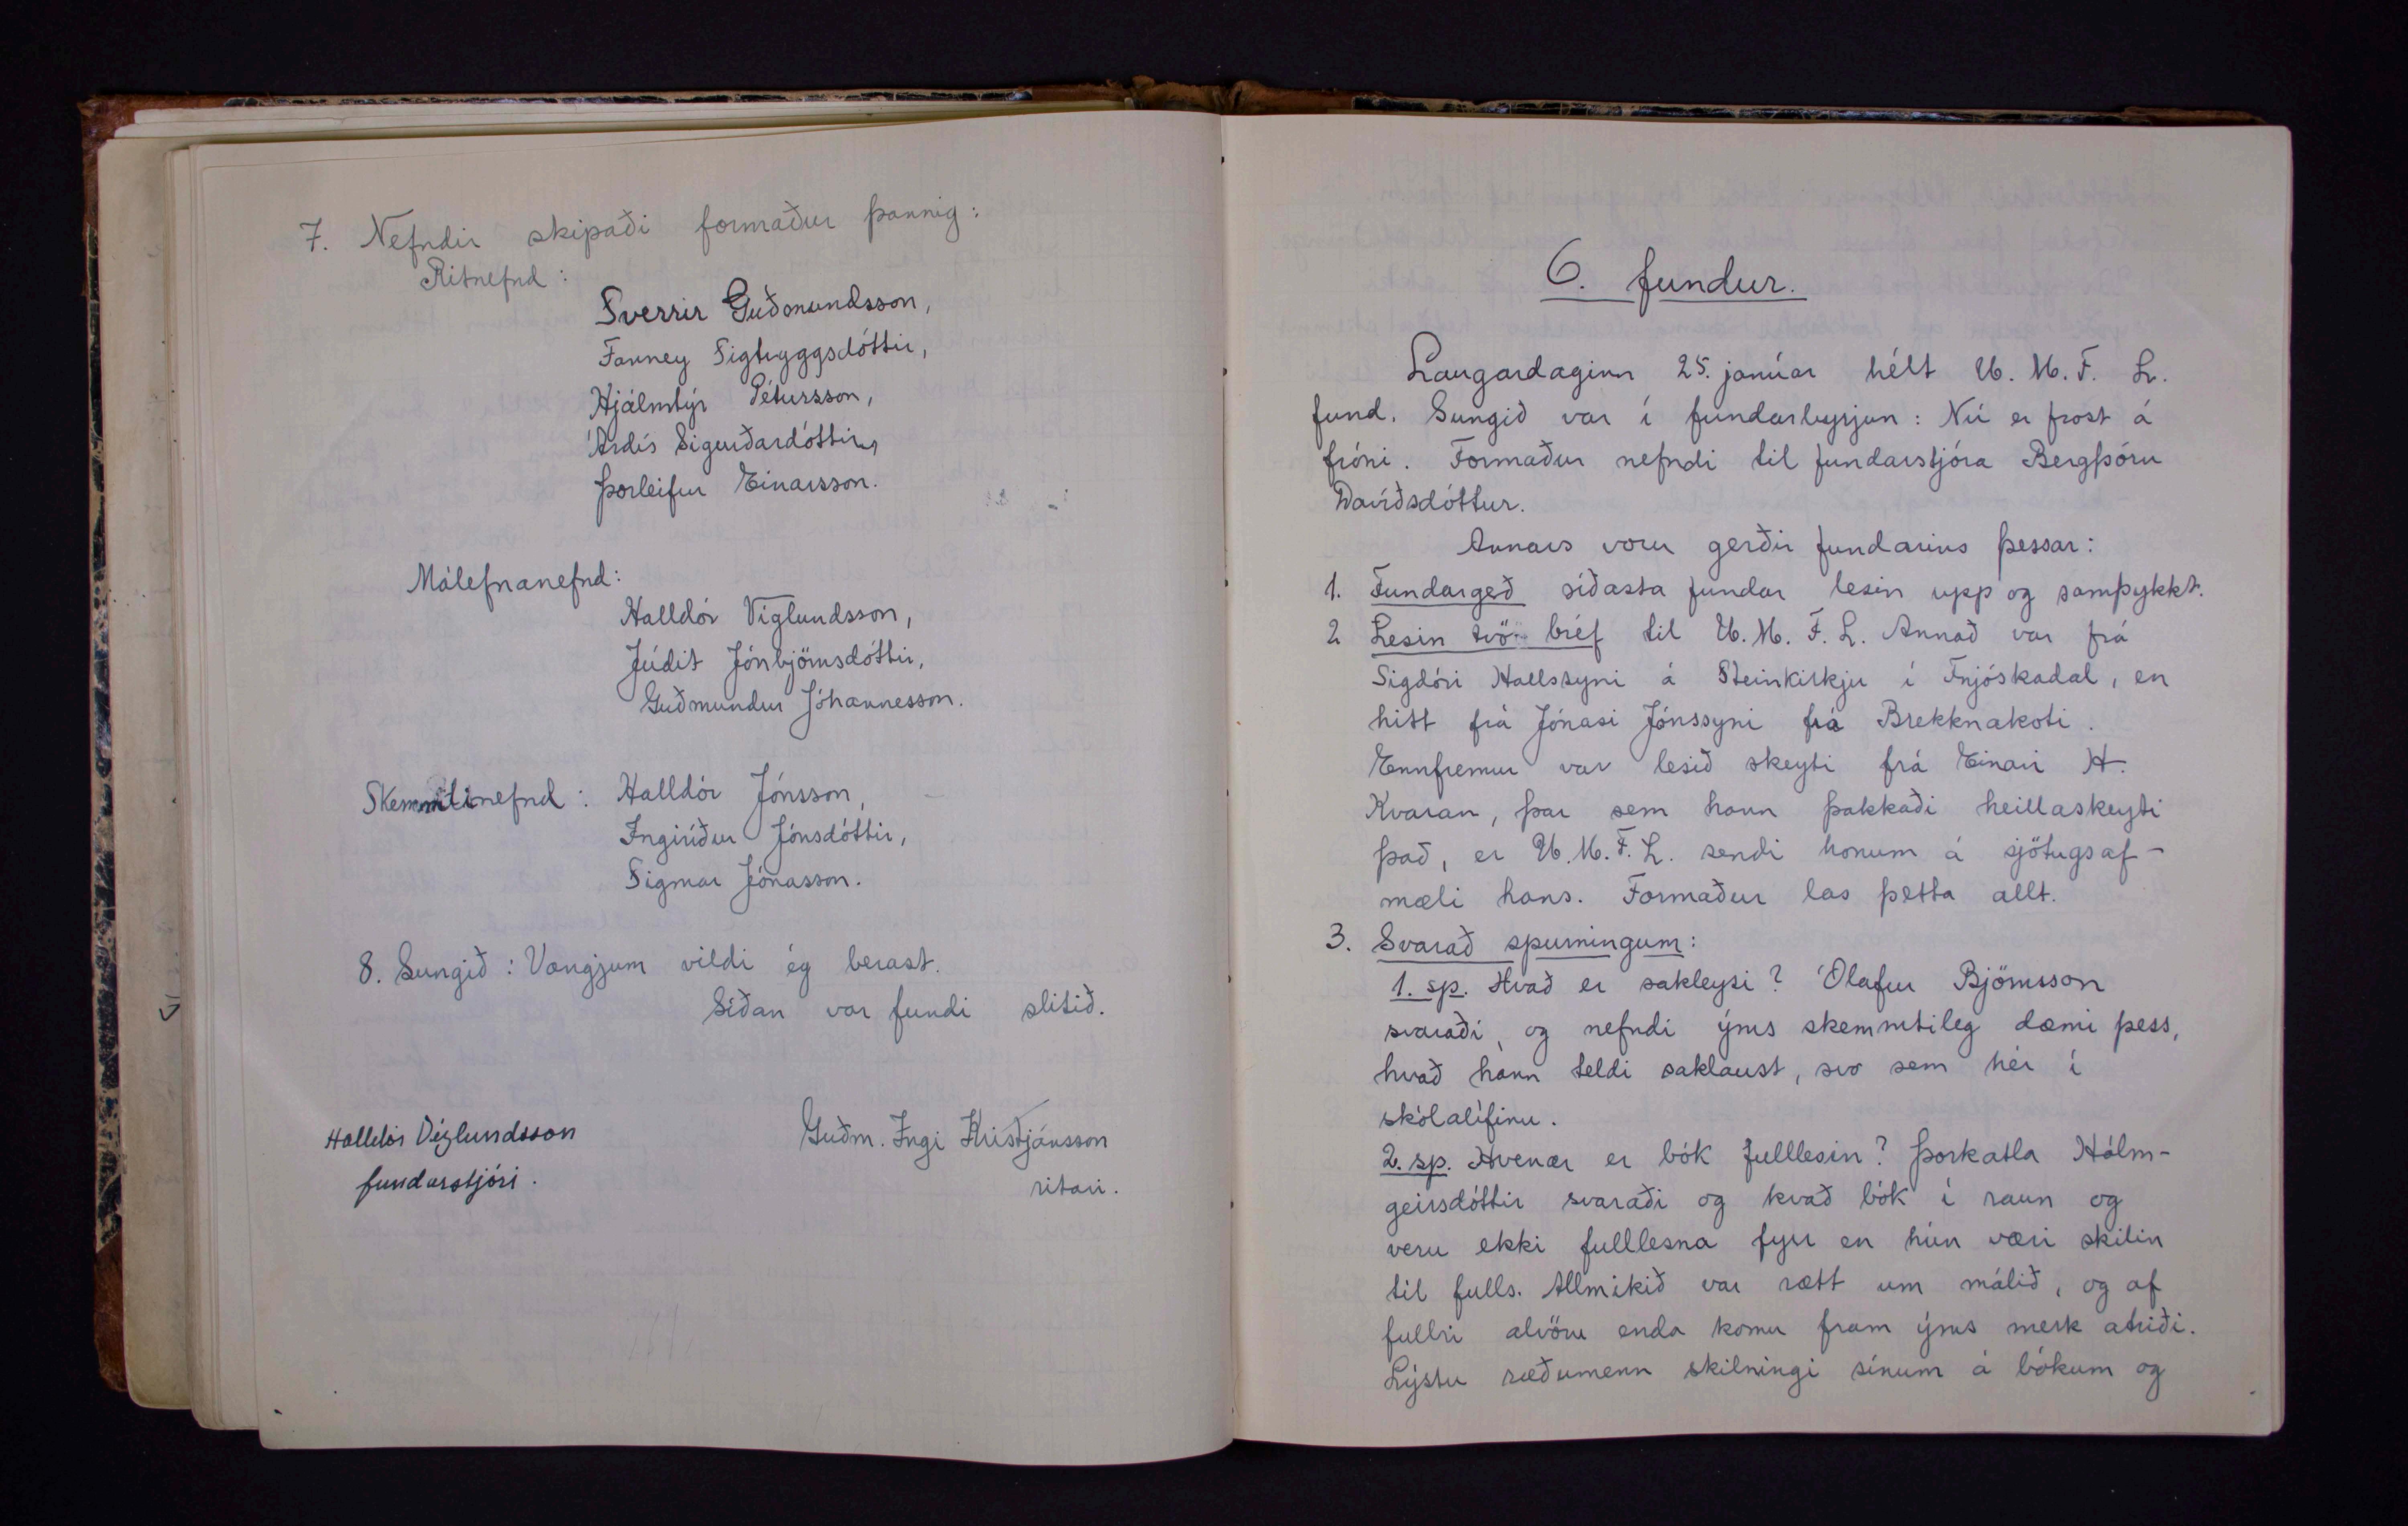 7. Nefndir skipaði formaður þannig:
Ritnefnd:
Sverrir Guðmundsson,
Fanney Sigtryggsdóttir,
Hjálmtýr Pétursson,
Árdís Sigurðardóttir,
Þorleifur Einarsson.
Málefnanefnd:
Halldór Víglundsson,
Júdit Jónbjörnsdóttir,
Guðmundur Jóhannesson.
Skemmtinefnd: Halldór Jónsson,
Ingiríður Jónsdóttir,
Sigmar Jónasson.
8. Sungið: Vængjum vildi ég berast.
Síðan var fundi slitið.
Halldór Víglundsson
fundarstjóri.
Guðm. Ingi Kristjánsson
ritari.
6. fundur.
Laugardaginn 25. janúar hélt U. M. F. L.
fund. Sungið var í fundarbyrjun: Nú er frost á
fróni. Formaður nefndi til fundarstjóra Bergþóru
Davíðsdóttur.
Annars voru gerðir fundarins þessar:
1. Fundargeð síðasta fundar lesin upp og samþykkt.
2 Lesin tvö bréf til U. M. F. L. Annað var frá
Sigdóri Hallssyni á Steinkirkju í Fnjóskadal, en
hitt frá Jónasi Jónssyni frá Brekknakoti.
Ennfremur var lesið skeyti frá Einari H.
Kvaran, þar sem hann þakkaði heillaskeyti
það, er U. M. F. L. sendi honum á sjötugsaf-
mæli hans. Formaður las þetta allt.
3. Svarað spurningum:
1. sp. Hvað er sakleysi? Ólafur Björnsson
svaraði, og nefndi ýms skemmtileg dæmi þess,
hvað hann teldi saklaust, svo sem hér í
skólalífinu.
2. sp. Hvenær er bók fulllesin? Þorkatla Hólm-
geirsdóttir svaraði og kvað bók í raun og
veru ekki fulllesna fyrr en hún væri skilin
til fulls. Allmikið var rætt um málið, og af
fullri alvöru enda komu fram ýms merk atriði.
Lýstu ræðumenn skilningi sínum á bókum og